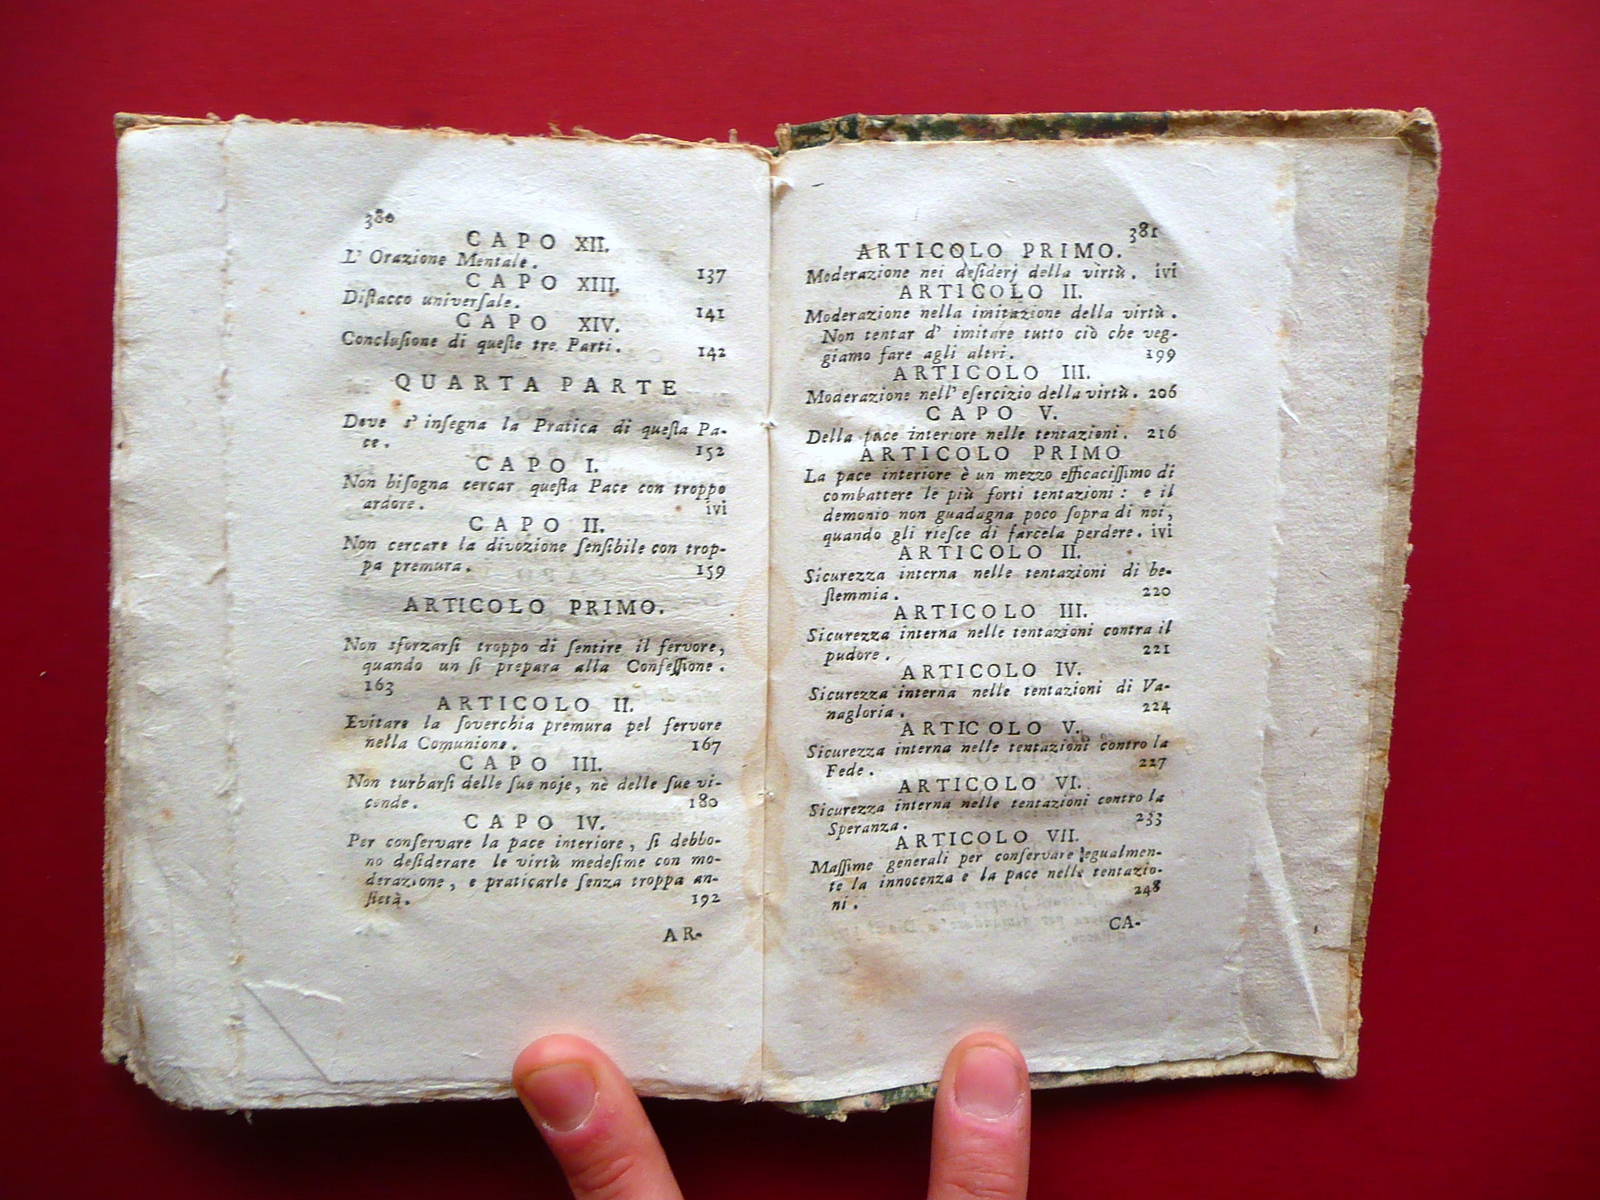 380
CAPO XII.
L' Orazione Mentale. 137
CAPO XIII.
Distacco universale. 141
CAPO XIV.
Conclusione di queste tre Parti. 142
QUARTA PARTE
Dove s' insegna la Pratica di questa Pa-
ce. 152
CAPO I.
Non bisogna cercar questa Pace con troppo
ardore. ivi
CAPO II.
Non cercare la divozione sensibile con trop-
pa premura. 159
ARTICOLO PRIMO.
Non sforzarsi troppo di sentire il fervore,
quando un si prepara alla Confessione.
163
ARTICOLO II.
Evitare la soverchia premura pel fervore
nella Comunione. 167
CAPO III.
Non turbarsi delle sue noje, nè delle sue vi-
cende. 180
CAPO IV.
Per conservare la pace interiore, si debbo-
no desiderare le virtù medesime con mo-
derazione, e praticarle senza troppa an-
sietà. 192
AR-
381
ARTICOLO PRIMO.
Moderazione nei desiderj della virtù. ivi
ARTICOLO II.
Moderazione nella imitazione della virtù.
Non tentar d' imitare tutto ciò che veg-
giamo fare agli altri. 199
ARTICOLO III.
Moderazione nell' esercizio della virtù. 206
CAPO V.
Della pace interiore nelle tentazioni. 216
ARTICOLO PRIMO
La pace interiore è un mezzo efficacissimo di
combattere le più forti tentazioni: e il
demonio non guadagna poco sopra di noi,
quando gli riesce di farcela perdere. ivi
ARTICOLO II.
Sicurezza interna nelle tentazioni di be-
stemmia. 220
ARTICOLO III.
Sicurezza interna nelle tentazioni contra il
pudore. 221
ARTICOLO IV.
Sicurezza interna nelle tentazioni di Va-
nagloria. 224
ARTICOLO V.
Sicurezza interna nelle tentazioni contro la
Fede. 227
ARTICOLO VI.
Sicurezza interna nelle tentazioni contro la
Speranza. 233
ARTICOLO VII.
Massime generali per conservare egualmen-
te la innocenza e la pace nelle tentazio-
ni. 248
CA-